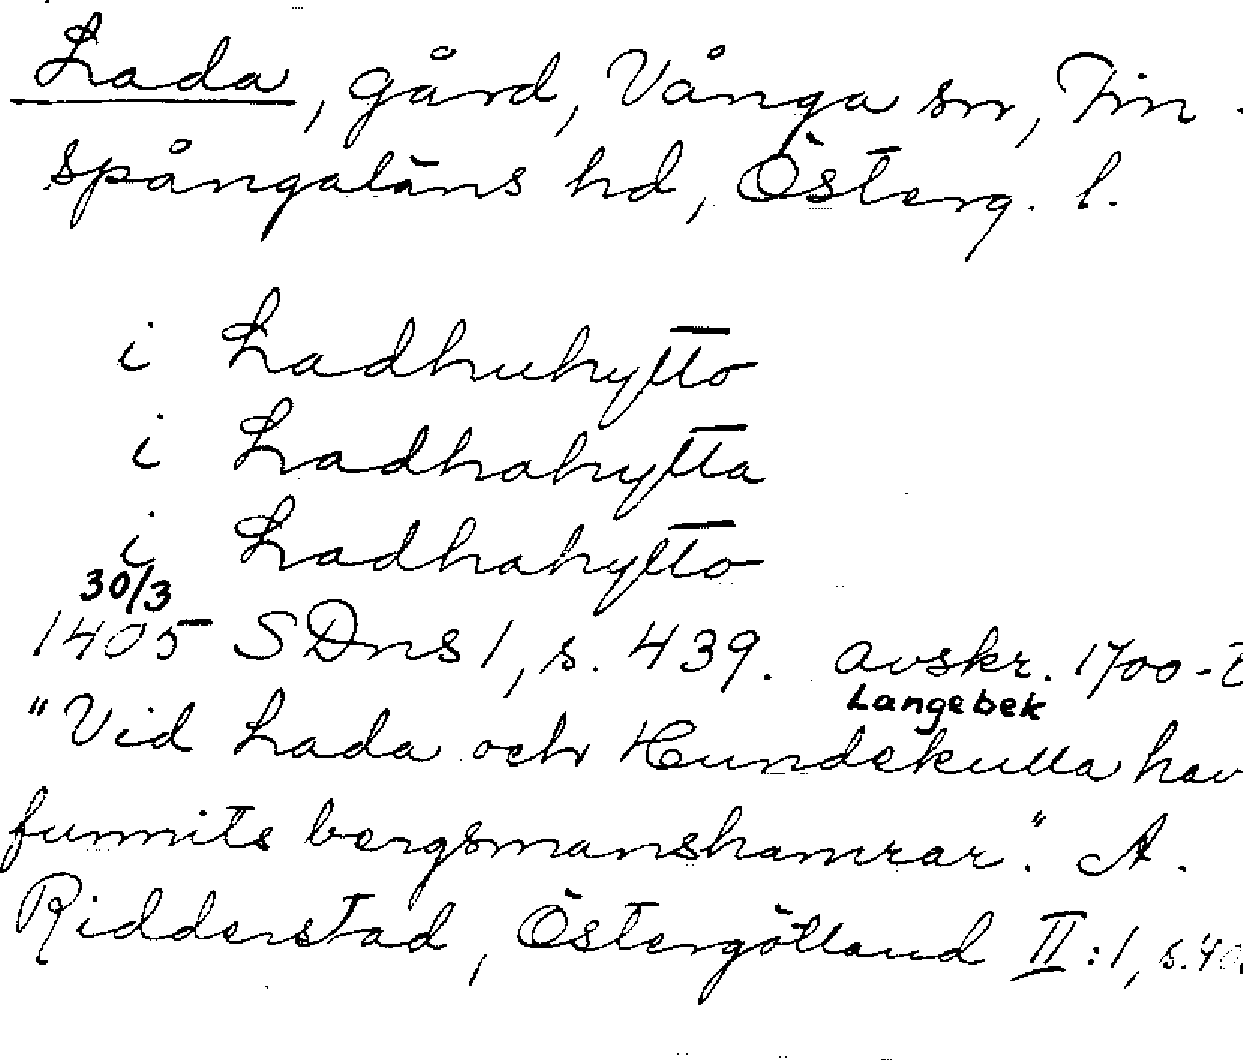 Lada, gård, Vånga sn, Fin-
spångaläns hd, Österg. l.
i Ladhuhytto
i Ladhahytta
i Ladhahytto
30/3
1405 SDns 1, s. 439. avskr. 1700-t
Langebek
"Vid Lada och Hundekulla hav
funnits bergsmanshamrar". A.
Ridderstad, Östergötland II:1, s. 40